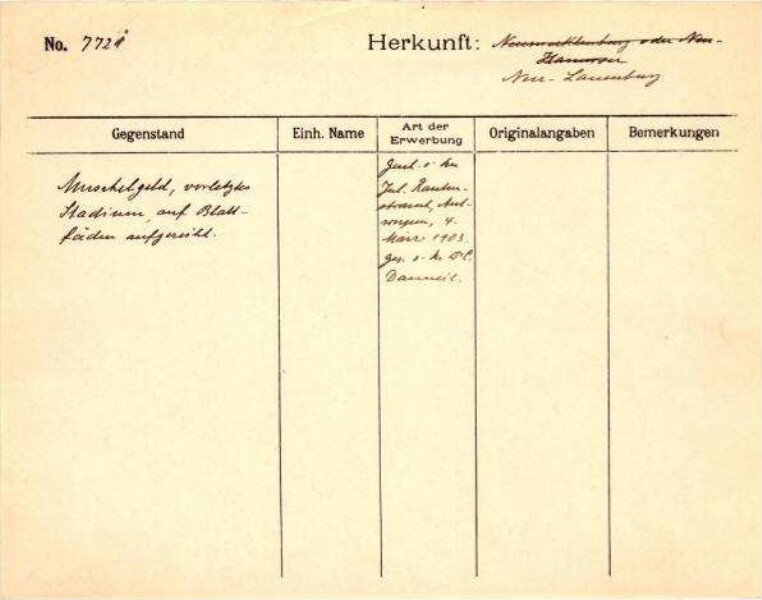 No. 7721
Herkunft: Neumecklenburg oder Neu-
Hannover
Neu-Lauenburg
Gegenstand
Einh. Name
Art der
Erwerbung
Originalangaben
Bemerkungen
Muschelgeld, vorletztes
Stadium, auf Blatt-
fäden aufgereiht.
Jul. Rauten-
strauch, Ant-
werpen, 4.
März 1903.
ges.
Danneil.